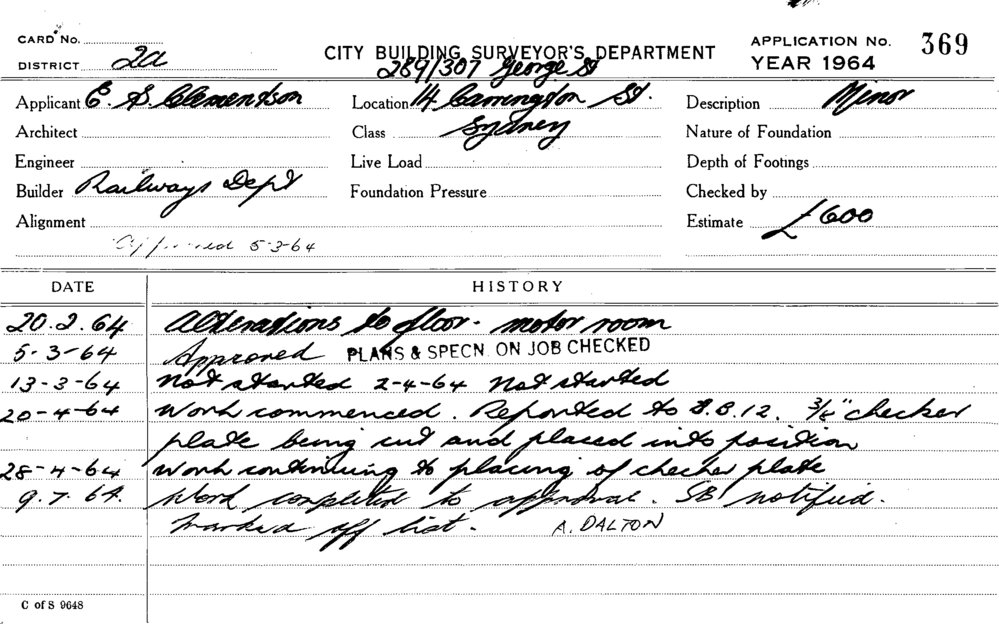 CARD No.
DISTRICT 2a
CITY BUILDING SURVEYOR'S DEPARTMENT
APPLICATION No. 369
YEAR 1964
289/307 George St
Applicant E. S. Clemendson
Location 14 Carrington St.
Description Minor
Architect
Class Sydney
Nature of Foundation
Engineer
Live Load
Depth of Footings
Builder Railways Dept
Foundation Pressure
Checked by
Alignment
Estimate £600
Approved 5-3-64
DATE HISTORY
20.2.64 Alterations to floor - motor room
5-3-64 Approved PLANS & SPECN. ON JOB CHECKED
13-3-64 Not started 2-4-64 Not started
20-4-64 Work commenced. Reported to 12. checker
plate being cut and placed into position
28-4-64 Work continuing to placing of checker plate
9.7.64. Work completed to approval. SB notified.
Marked off list. A. DALTON
C of S 9648